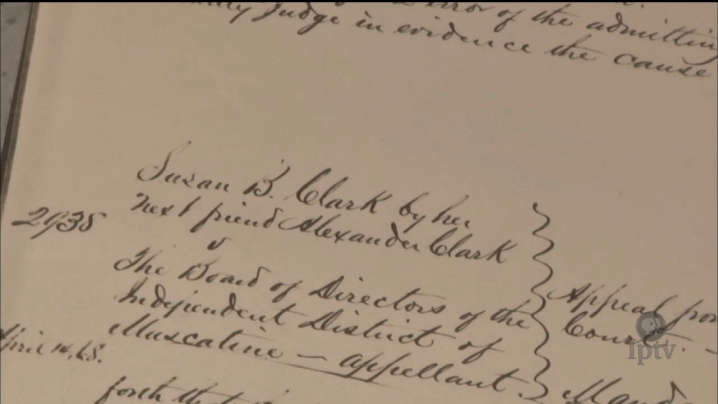 Error of the admitting
Judge in evidence the cause
Susan B. Clark by her
next friend Alexander Clark
2935
v
The Board of Directors of the
Independent District of
Muscatine — appellant.
Appeal from
Court. —
April 14, 68.
forth the
iptv